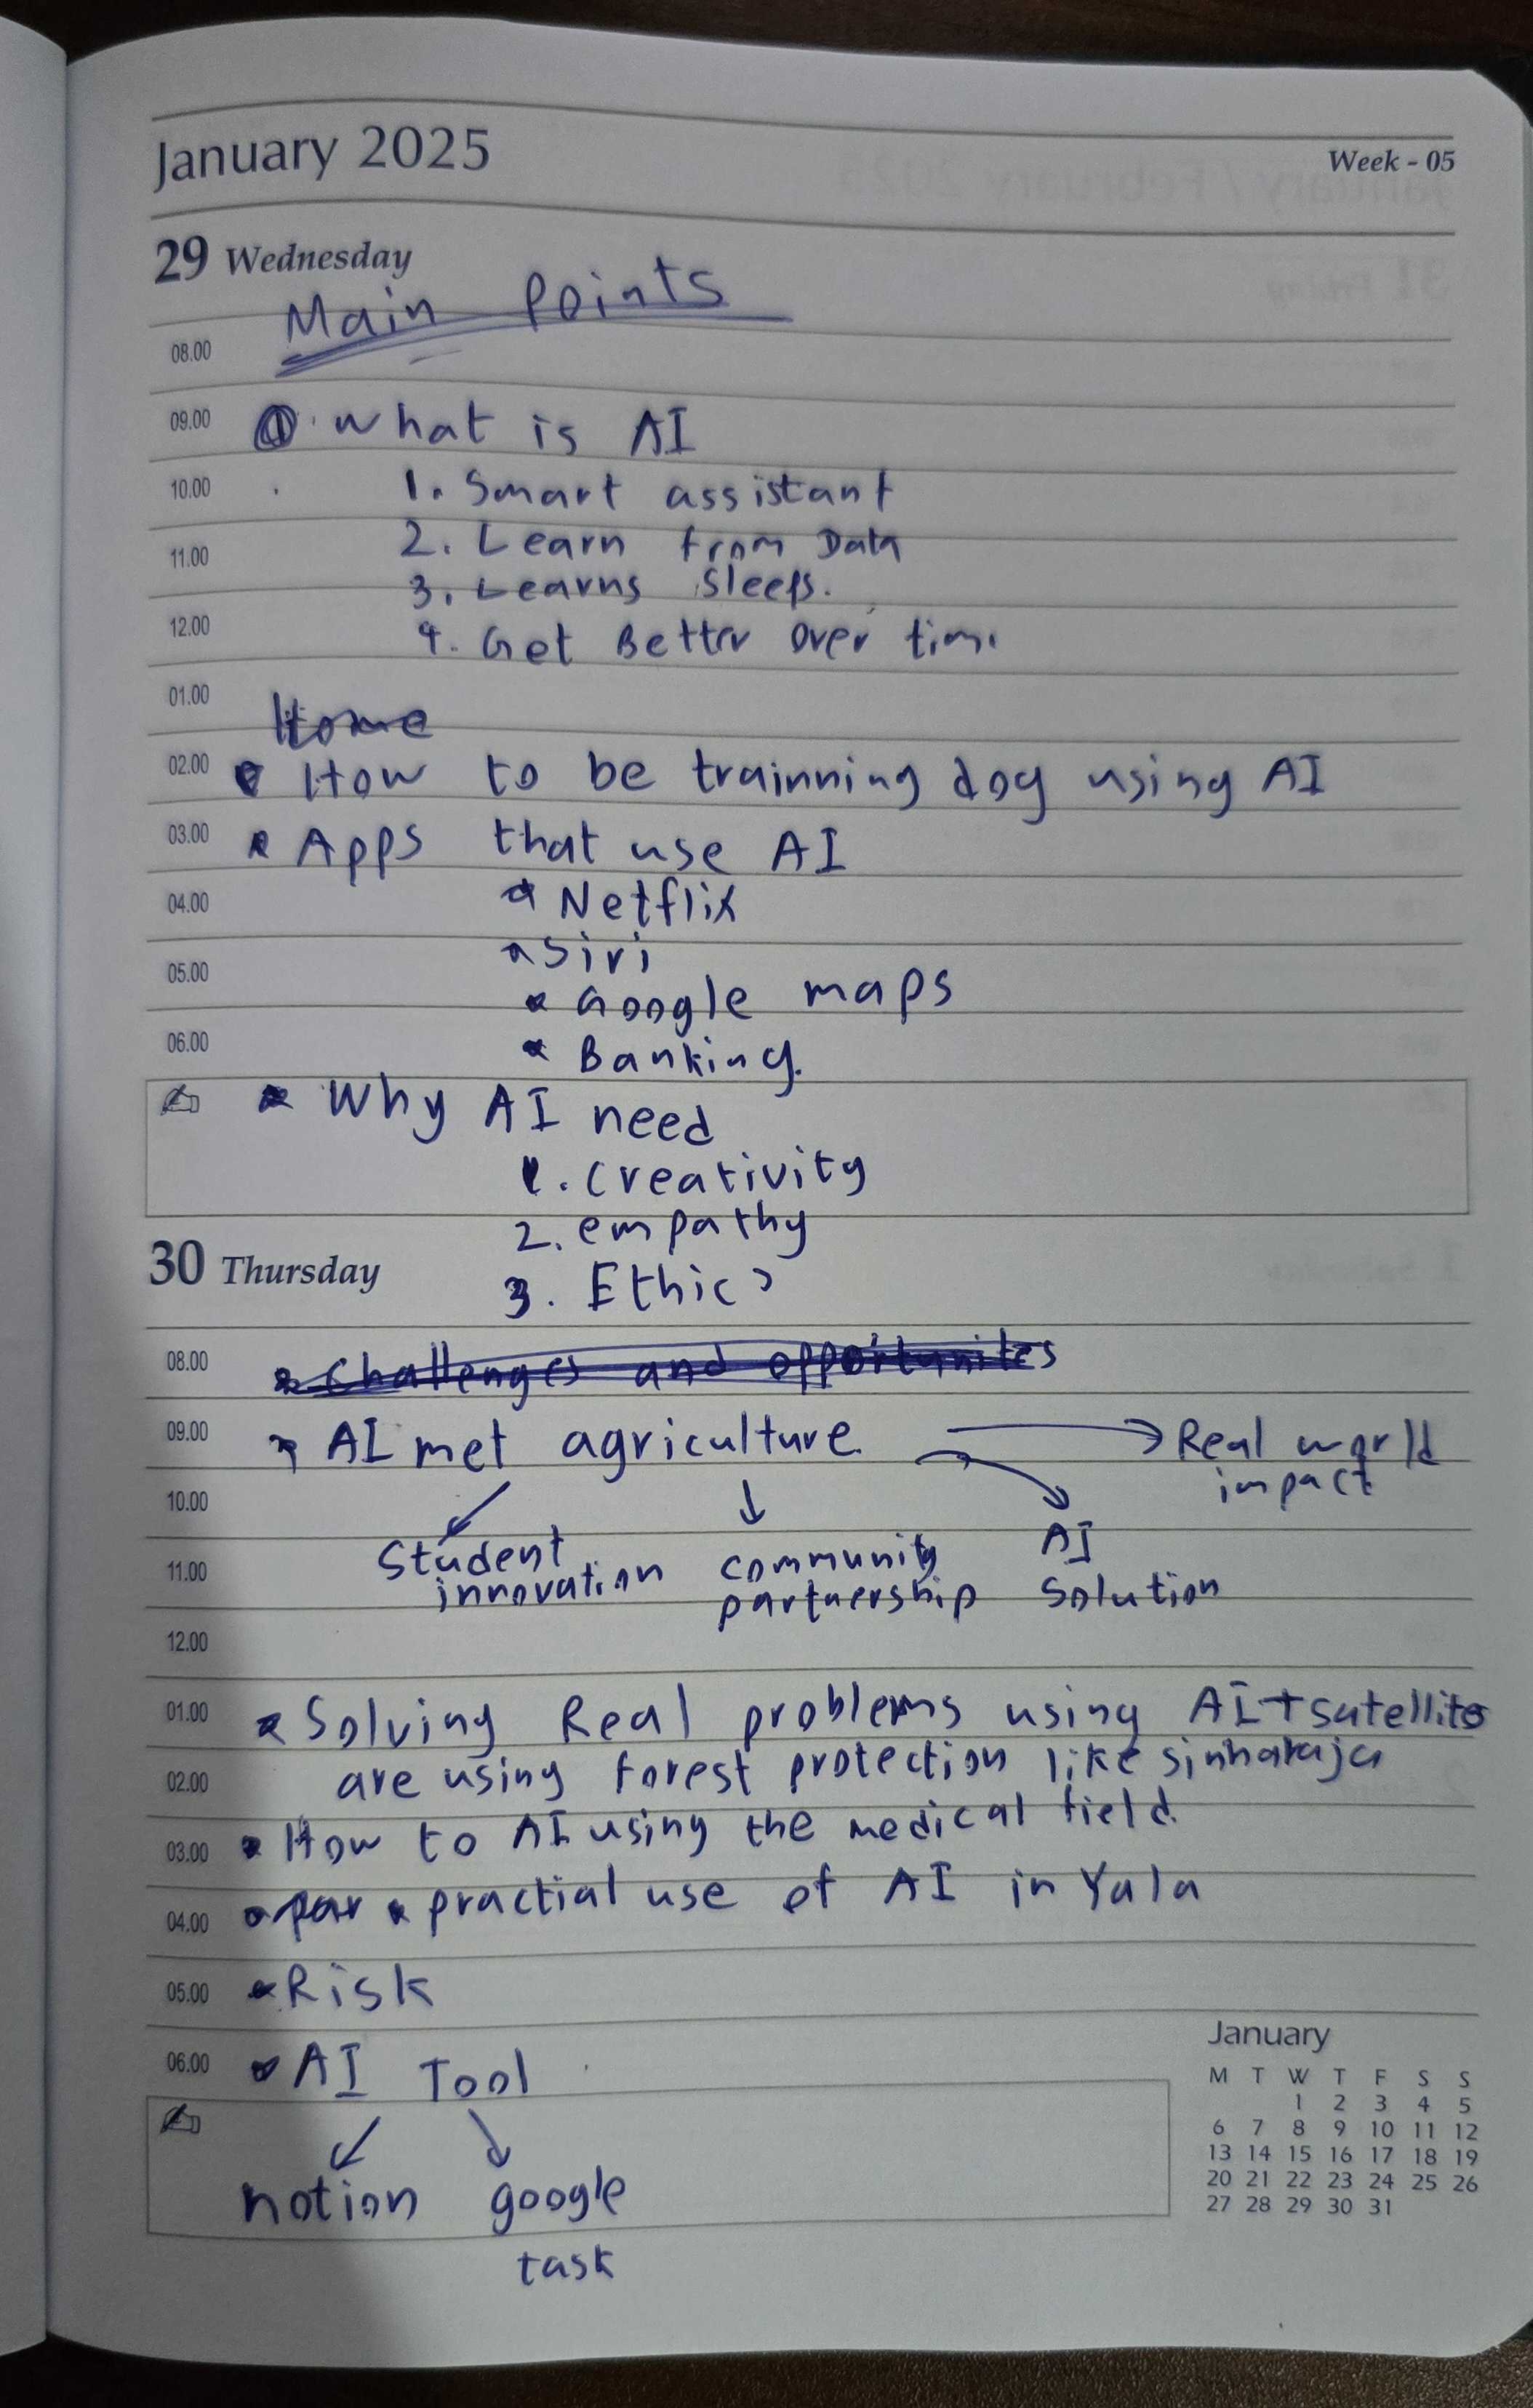 January 2025
Week - 05
29 Wednesday
Main Points
08.00
09.00 ① What is AI
10.00 1. Smart assistant
11.00 2. Learn from Data
3. Learns Sleeps.
12.00 4. Get Better over time
01.00
Home
02.00 How to be trainning dog using AI
03.00 * Apps that use AI
04.00 * Netflix
* Siri
05.00 * Google maps
06.00 * Banking.
* Why AI need
1. Creativity
2. empathy
30 Thursday 3. Ethics
08.00 * Challenges and opportunites
09.00 * AI met agriculture → Real world
impact
10.00
Student community AI
11.00 innovation partnership Solution
12.00
01.00 * Solving Real problems using AI + satellites
02.00 are using forest protection like sinharaja
03.00 * How to AI using the medical field.
04.00 par * practial use of AI in Yala
05.00 * Risk
06.00 * AI Tool
notion google
task
January
M T W T F S S
1 2 3 4 5
6 7 8 9 10 11 12
13 14 15 16 17 18 19
20 21 22 23 24 25 26
27 28 29 30 31